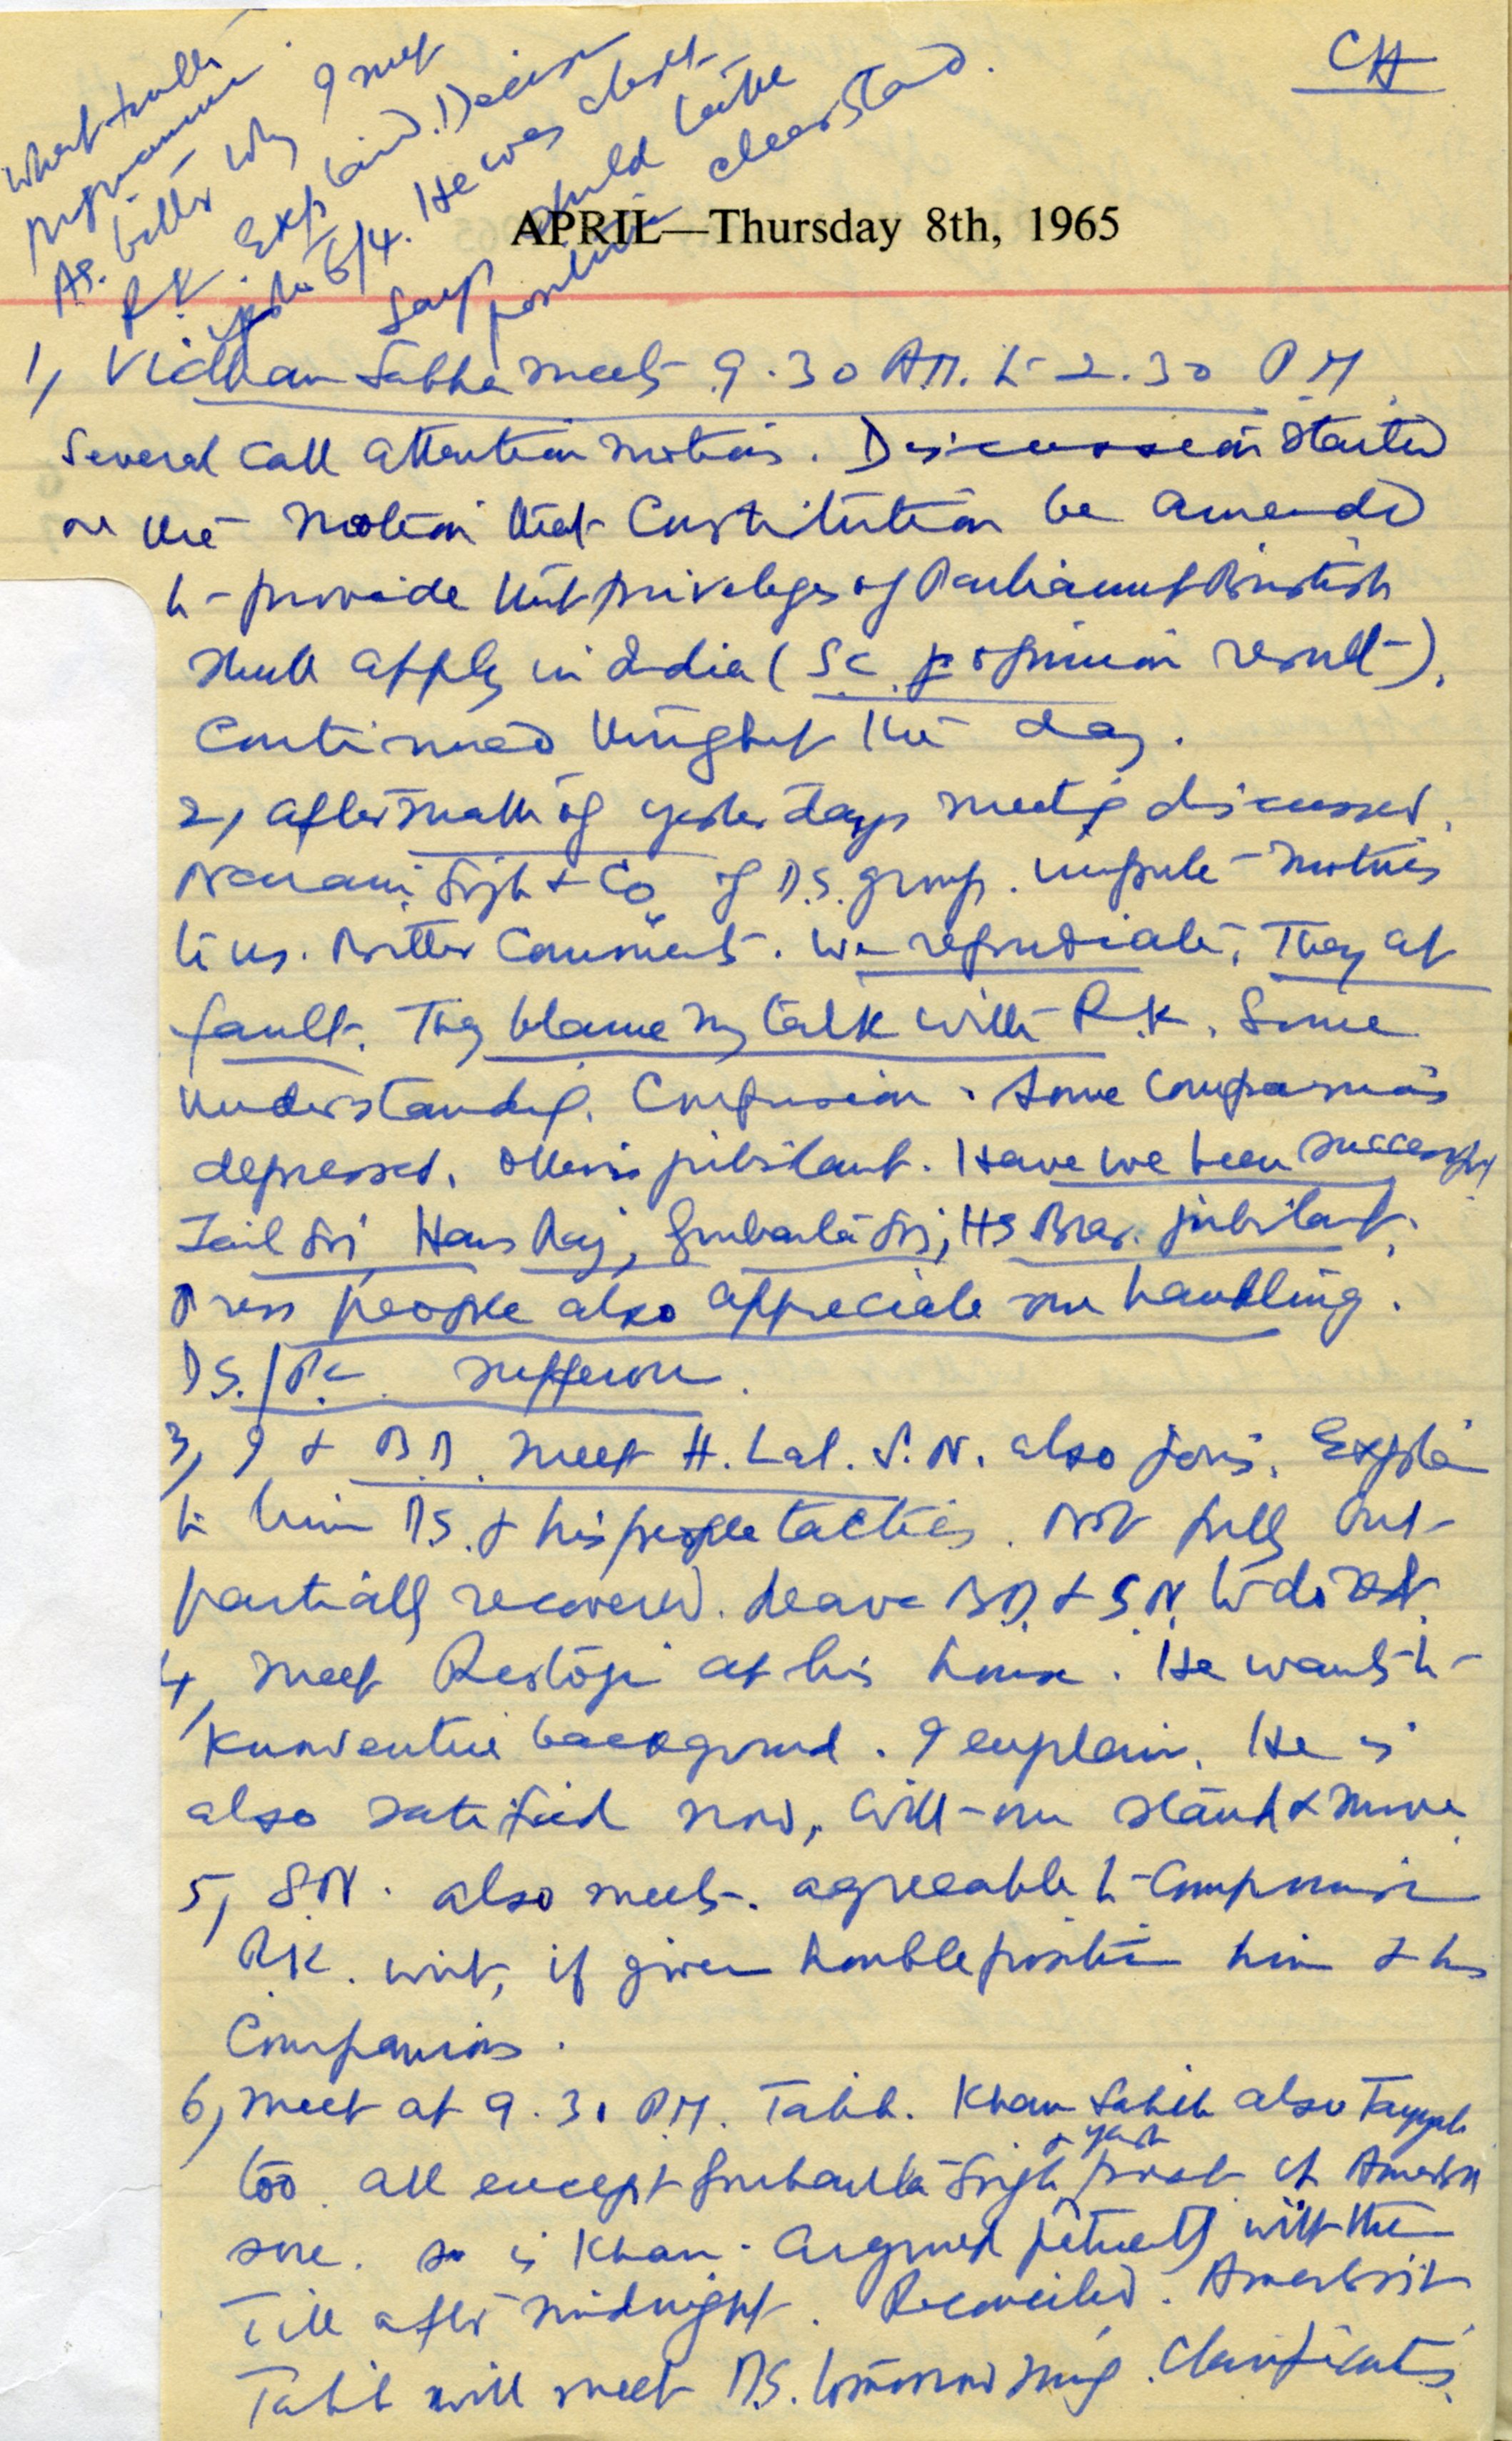 CH
what
programme
As. bitter why I met
R.K. Explained. Decision
upto 6/4. He was
Says should take
positive clear stand.
APRIL—Thursday 8th, 1965
1, Vidhan Sabha meets 9.30 AM. to 2.30 PM
Several Call attention motions. Discussion started
on the motion that Constitution be amended
to provide that privileges of Parliament British
shall apply in India (S.C. opinion result).
Continued throughout the day.
2, aftermath of yesterdays meeting discussed.
Narain Singh & Co of D.S. group. impute motives
to us. Bitter Comments. We repudiate. They at
fault. They blame my talk with R.K. Some
understanding. Confusion. Some Companions
depressed. Others jubilant. Have we been successful?
Jail Sri Hans Raj, Gurbanta Sri, HS Brar. jubilant.
Press people also appreciate our handling.
D.S./P.C. suffer one.
3, I & B.D. meet H. Lal. S.N. also joins. Explain
to him D.S. & his people tactics. Not fully but
partially recovered. Leave BD. & S.N. to do rest.
4, meet Rastogi at his house. He wants to
know entire background. I explain. He is
also satisfied now, with our stand & move.
5, S.N. also meets. agreeable to Compromise
R.K. wit, if given honble position him & his
Companions.
6, meet at 9.30 P.M. Talib. Khan Sahib also Tayyab
too. all except Gurbanta Singh & Yash post at
sore. so is Khan. Argued patiently with them
Till after midnight. Reconciled. Amar
Talib will meet D.S. tomorrow mng. Clarification.